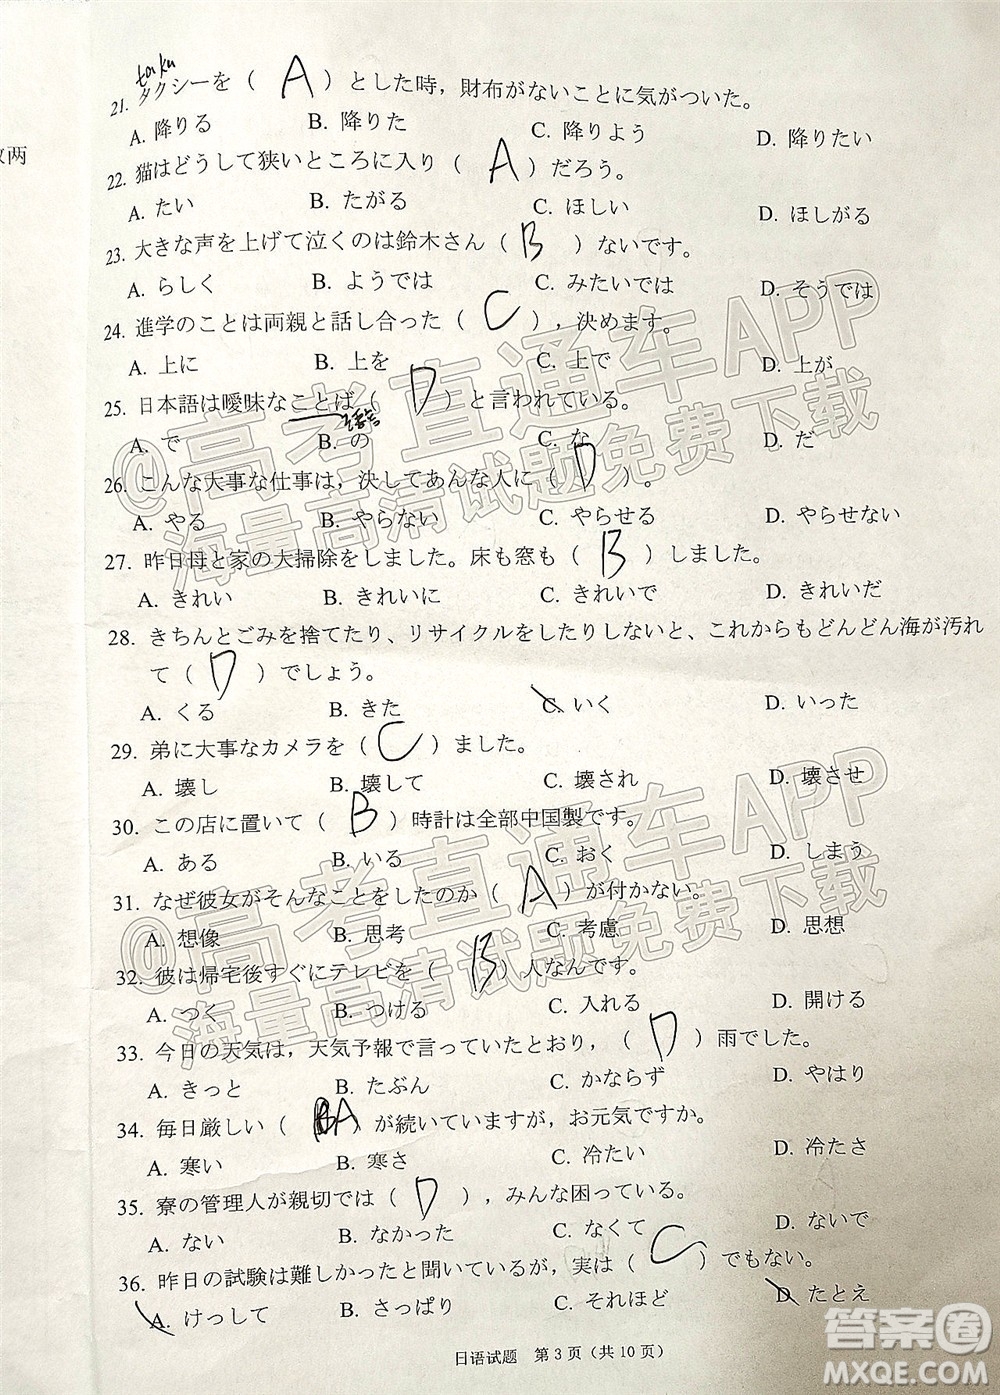 taku
21. タクシーを（ A ）とした時，財布がないことに気がついた。
A. 降りる B. 降りた C. 降りよう D. 降りたい
两
22. 猫はどうして狭いところに入り（ A ）だろう。
A. たい B. たがる C. ほしい D. ほしがる
23. 大きな声を上げて泣くのは鈴木さん（ B ）ないです。
A. らしく B. ようでは C. みたいでは D. そうでは
24. 進学のことは両親と話し合った（ C ），決めます。
A. 上に B. 上を C. 上で D. 上が
25. 日本語は曖昧なことば（ D ）と言われている。
A. で B. の C. な D. だ
26. こんな大事な仕事は，決してあんな人に（ D ）。
A. やる B. やらない C. やらせる D. やらせない
27. 昨日母と家の大掃除をしました。床も窓も（ B ）しました。
A. きれい B. きれいに C. きれいで D. きれいだ
28. きちんとごみを捨てたり、リサイクルをしたりしないと、これからもどんどん海が汚れ
て（ D ）でしょう。
A. くる B. きた C. いく D. いった
29. 弟に大事なカメラを（ C ）ました。
A. 壊し B. 壊して C. 壊され D. 壊させ
30. この店に置いて（ B ）時計は全部中国製です。
A. ある B. いる C. おく D. しまう
31. なぜ彼女がそんなことをしたのか（ A ）が付かない。
A. 想像 B. 思考 C. 考慮 D. 思想
32. 彼は帰宅後すぐにテレビを（ B ）人なんです。
A. つく B. つける C. 入れる D. 開ける
33. 今日の天気は，天気予報で言っていたとおり，（ D ）雨でした。
A. きっと B. たぶん C. かならず D. やはり
34. 毎日厳しい（ BA ）が続いていますが，お元気ですか。
A. 寒い B. 寒さ C. 冷たい D. 冷たさ
35. 寮の管理人が親切では（ D ），みんな困っている。
A. ない B. なかった C. なくて D. ないで
36. 昨日の試験は難しかったと聞いているが，実は（ C ）でもない。
A. けっして B. さっぱり C. それほど D. たとえ
日语试题 第 3 页（共 10 页）
@高考直通车APP
海量高清试题免费下载
@高考直通车APP
海量高清试题免费下载
答案圈
MXQE.COM